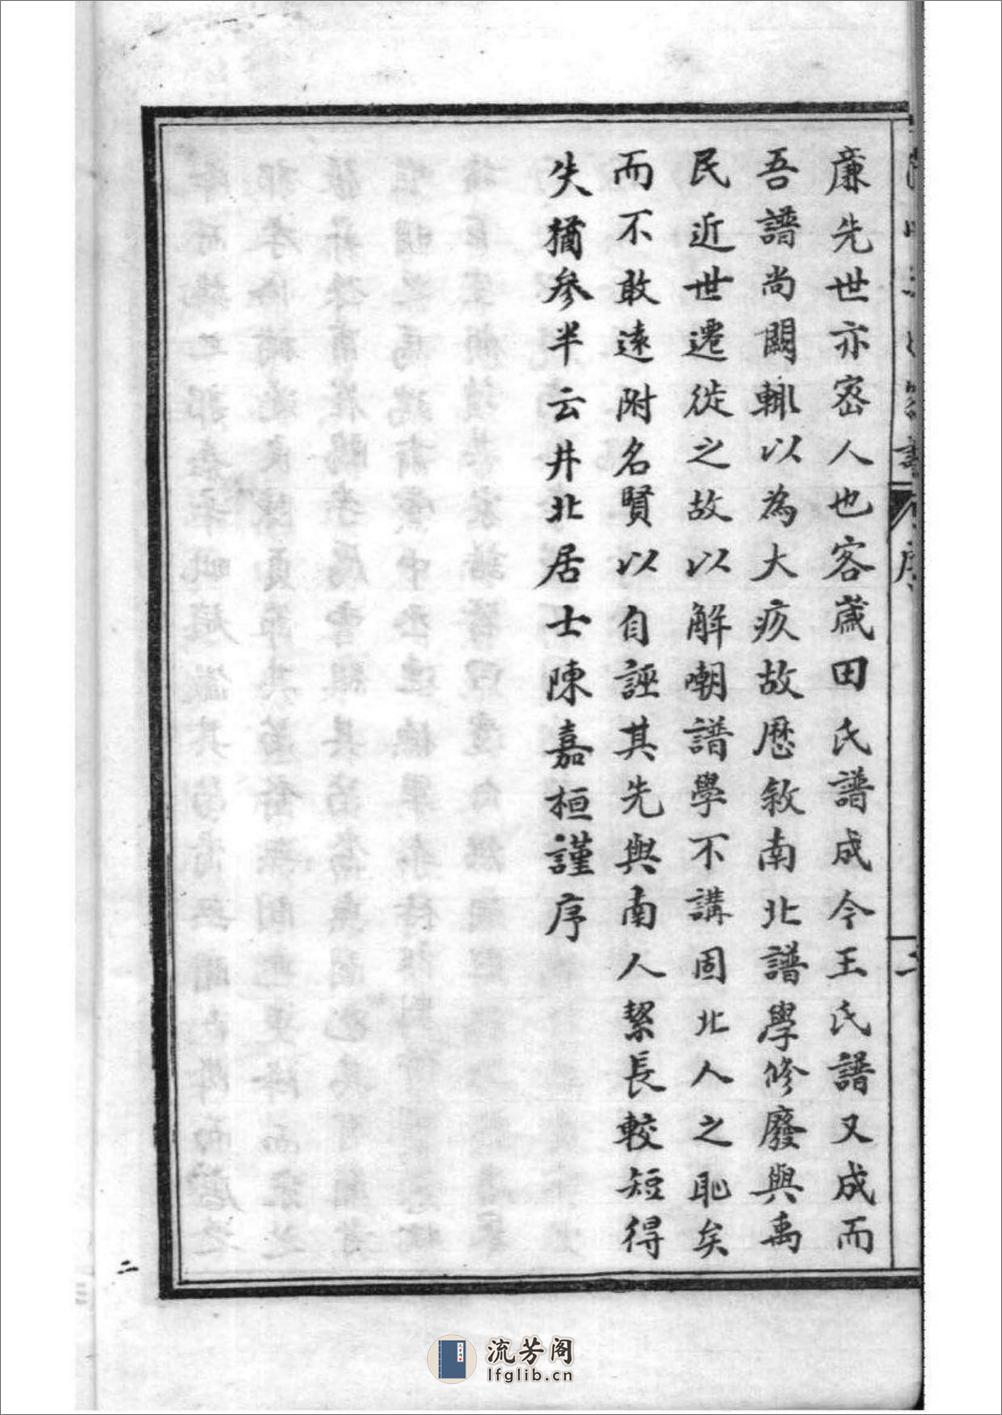 廉先世亦密人也客歲田氏譜成今王氏譜又成而
吾譜尚闕輙以為大疚故歷敘南北譜學修廢與禹
民近世遷徙之故以解嘲譜學不講固北人之恥矣
而不敢遠附名賢以自誣其先與南人絜長較短得
失猶參半云井北居士陳嘉桓謹序
序
二
二
流芳阁
lfglib.cn